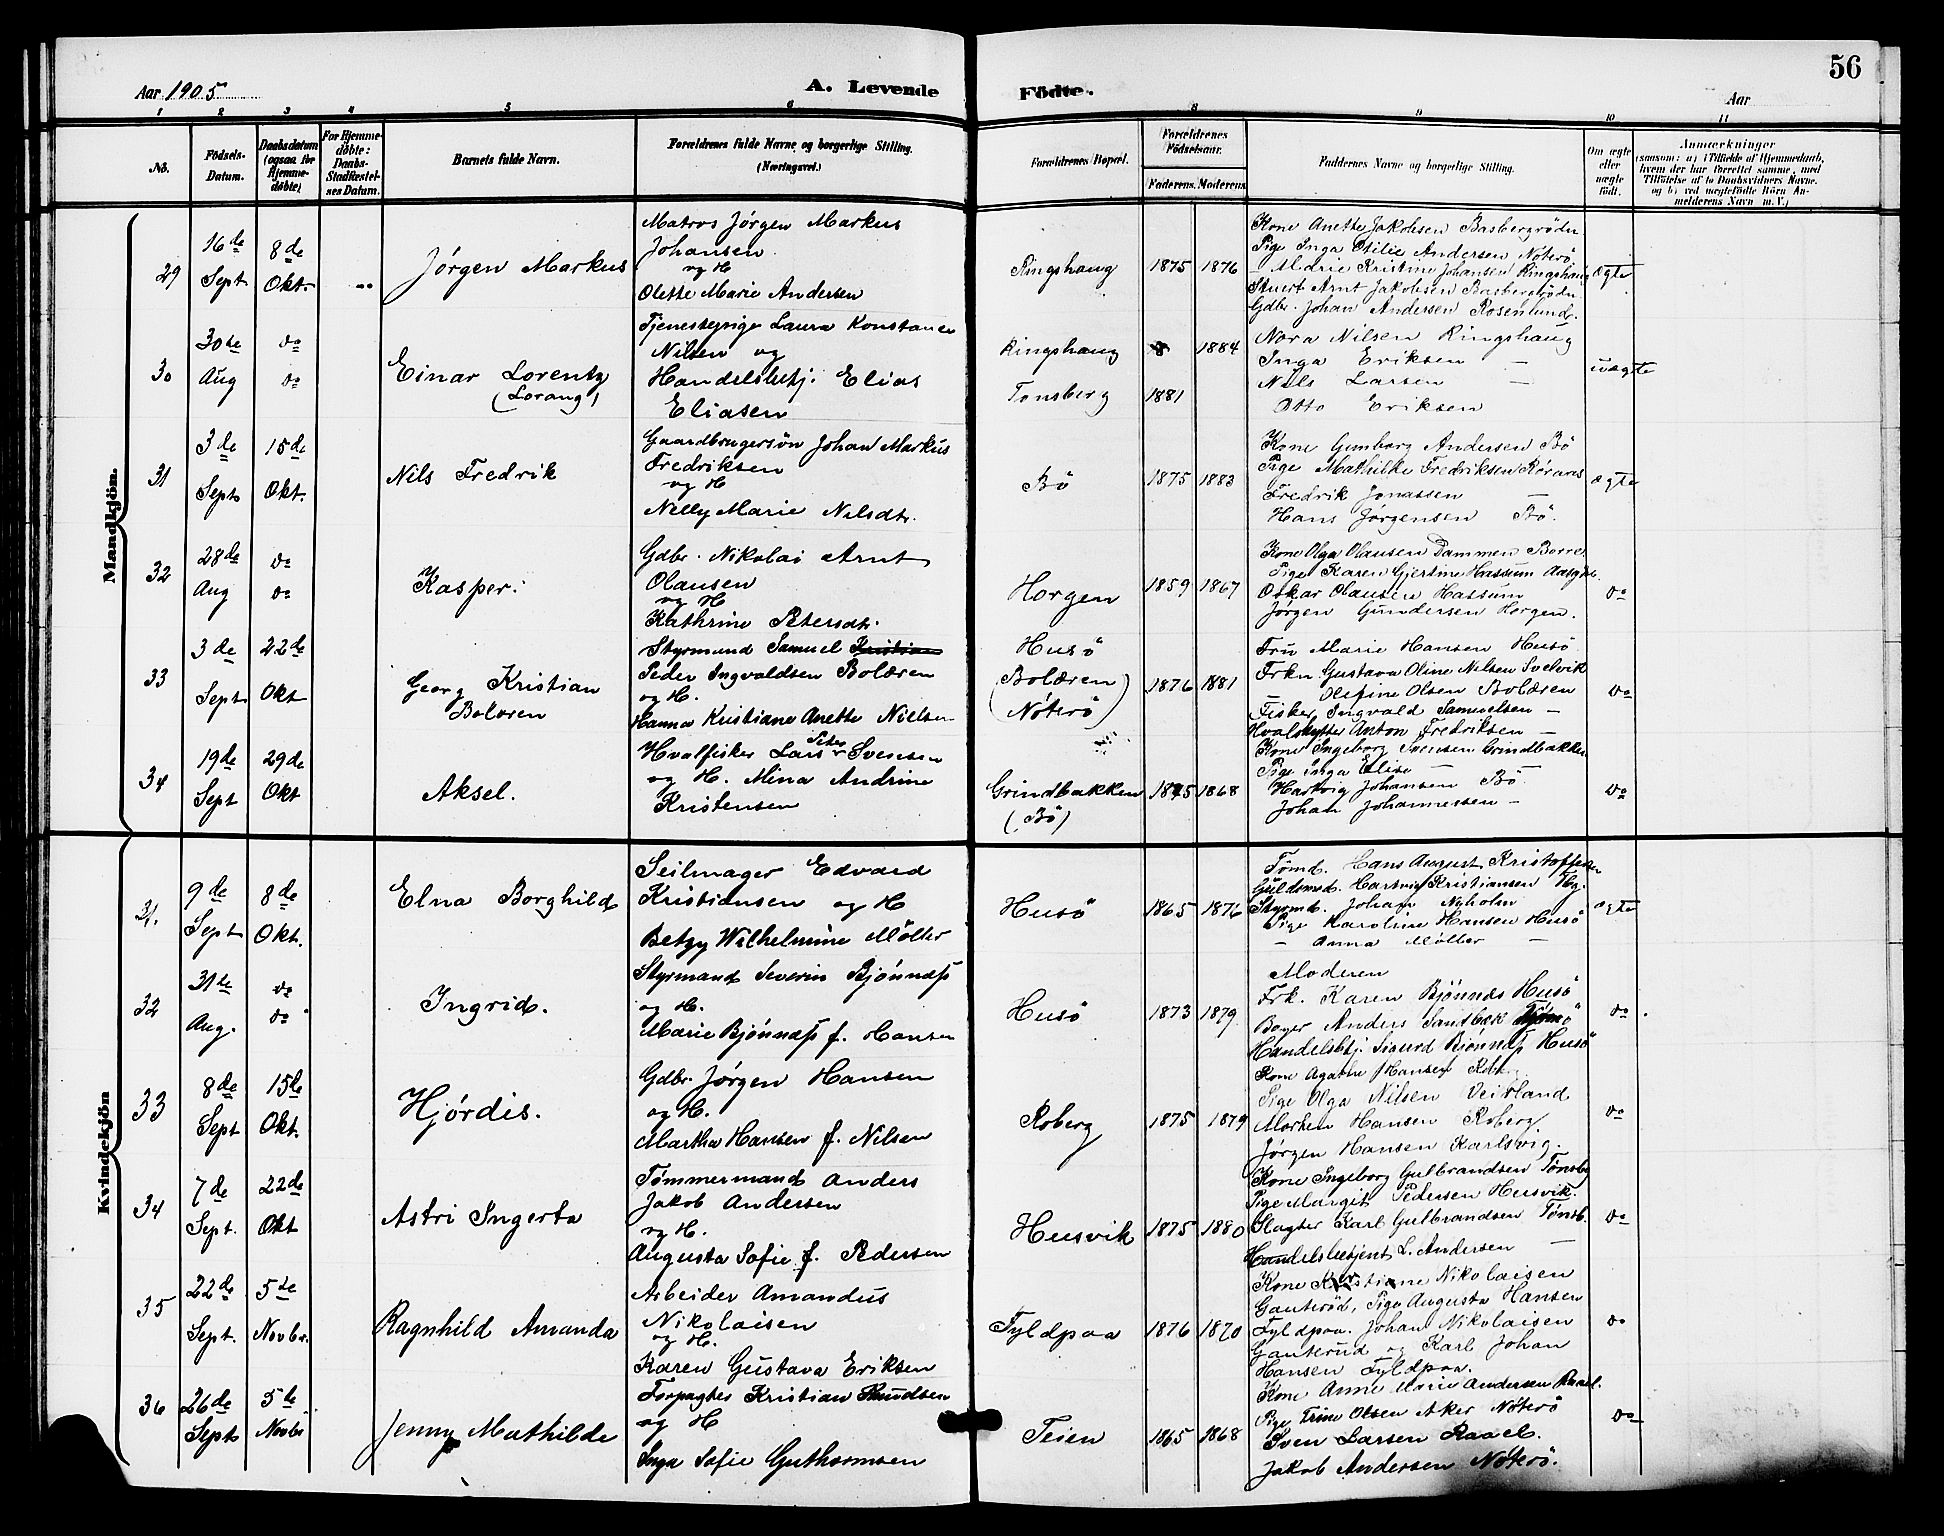 56
Aar 1905
A. Levende Födte.
Aar
1 2 3 4 5 6 8 9 10 11
No.
Födsels-Datum.
Daabsdatum (ogsaa for Hjemmedöbte)
For Hjemmedöbte: Daabs-Stadfæstelses Datum.
Barnets fulde Navn.
Forældrenes fulde Navne og borgerlige Stilling. (Næringsvei.)
Forældrenes Bopæl.
Forældrenes Födselsaar.
Faderens. Moderens.
Faddernes Navne og borgerlige Stilling.
Om ægte eller uægte födt.
Anmærkninger
(saasom: a) i Tilfælde af Hjemmedaab,
hvem der har forrettet samme, med
Tilföielse af to Daabsvidners Navne,
og b) ved uægtefödte Börn Anmelderens Navn m.V.)
Mandkjön.
29
16de Sept
8de Okt.
Jørgen Markus
Matros Jørgen Markus
Johansen
og H
Olette Marie Andersen
Ringshaug
1875 1876
Kone Anette Jakobsen Basbergrödn
Pige Inga Otilie Andersen Nöterö
— Marie Kristine Johansen Ringshaug
Stuert Arnt Jakobsen Basbergrödn
Gdbr. Johan Andersen Rosenlund.
ægte
30
30te Aug
do do
Einar Lorentz
(Lorang)
Tjenestepige Laura Konstance
Nilsen og
Handelsbetj. Elias
Eliasen
Ringshaug
1884
Tonsberg
1881
Nora Nilsen Ringshaug
Inga Eriksen —
Nils Larsen —
Otto Eriksen
uægte
31
3de Sept
15de Okt.
Nils Fredrik
Gaardbrugersön Johan Markus
Fredriksen
og H
Nelly Marie Nilsdtr.
Bö
1875 1883
Kone Gunborg Andersen Bö
Pige Mathilde Fredriksen Röraas
Fredrik Jonassen —
Hans Jørgensen Bö.
ægte
32
28de Aug
do do
Kasper.
Gdbr. Nikolai Arnt
Olausen
og H
Kathrine Petersdtr.
Horgen
1859 1867
Kone Olga Olausen Dammen Borre
Pige Karen Gjertine Hassum
Oskar Olausen Hassum
Jørgen Gundersen Horgen.
do
33
3de Sept
22de Okt
Georg Kristian
Bolæren
Styrmand Samuel Kristian
Peder Ingvaldsen Bolæren
og H.
Hanna Kristiane Anette Nielsen
Husö
(Bolæren
Nöterö)
1876 1881
Fru Marie Hansen Husö
Frkn Gustava Oline Nilsen Svelvik
— Olefine Olsen Bolæren
Fisker Ingvald Samuelsen —
Hvalskytter Anton Fredriksen —
do
34
19de Sept
29de Okt
Aksel.
Hvalfisker Lars Peter Svensen
og H. Mina Andrine
Kristensen
Grindbakken
(Bö)
1875 1868
Kone Ingeborg Svensen Grindbakken
Pige Inga Elise —
Hartvig Johansen Bö
Johan Johannessen —
do
Kvindekjön
31.
9de Sept
8de Okt.
Elna Borghild
Seilmager Edvard
Kristiansen og H
Betzy Wilhelmine Möller
Husö
1865 1876
Tømd. Hans August Kristoffersen
Guldsmed. Hartvig Kristiansen Tbg.
Styrmd. Johan Nyholm
Pige Karoline Hansen Husö
— Anna Möller —
ægte
32
31te Aug.
do do
Ingrid.
Styrmand Severin Bjönness
og H.
Marie Bjönness f. Hansen
Husö
1873 1879
Moderen
Frk. Karen Bjönnes Husö
Bager Anders Sandbæk
Handelsbtj. Sigurd Bjönness Husö
do
33
8de Sept
15de Okt.
Hjördis.
Gdbr. Jørgen Hansen
og H.
Martha Hansen f. Nilsen
Roberg
1875 1879
Kone Agathe Hansen Rob.
Pige Olga Nilsen Veirland
Morten Hansen Roberg
Jørgen Hansen Karlsvig.
do
34
7de Sept.
22de Okt
Astri Ingerta
Tömmermand Anders
Jakob Andersen
og H.
Augusta Sofie f. Pedersen
Husvik
1875 1880
Kone Ingeborg Gulbrandsen Tönsbg
Pige Margit Pedersen Husvik.
Slagter Karl Gulbrandsen Tönsb.
Handelsbetjent L. Andersen —
do
35
22de Sept.
5te Novbr.
Ragnhild Amanda
Arbeider Amandus
Nikolaisen
og H.
Karen Gustava Eriksen
Fyldpaa
1876 1870
Kone Kristiane Nikolaisen
Gauteröd, Pige Augusta Hansen
Fyldpaa. Johan Nikolaisen
Gauterud og Karl Johan
Hansen Fyldpaa.
do
36
26de Sept
5te Novbr
Jenny Mathilde
Forpagter Kristian Knudsen
og H
Inga Sofie Guthormsen
Teien
1865 1868
Kone Anne Marie Andersen Raael.
Pige Trine Olsen Aker Nöterö
Sven Larsen Raael.
Jakob Andersen Nöterö.
do